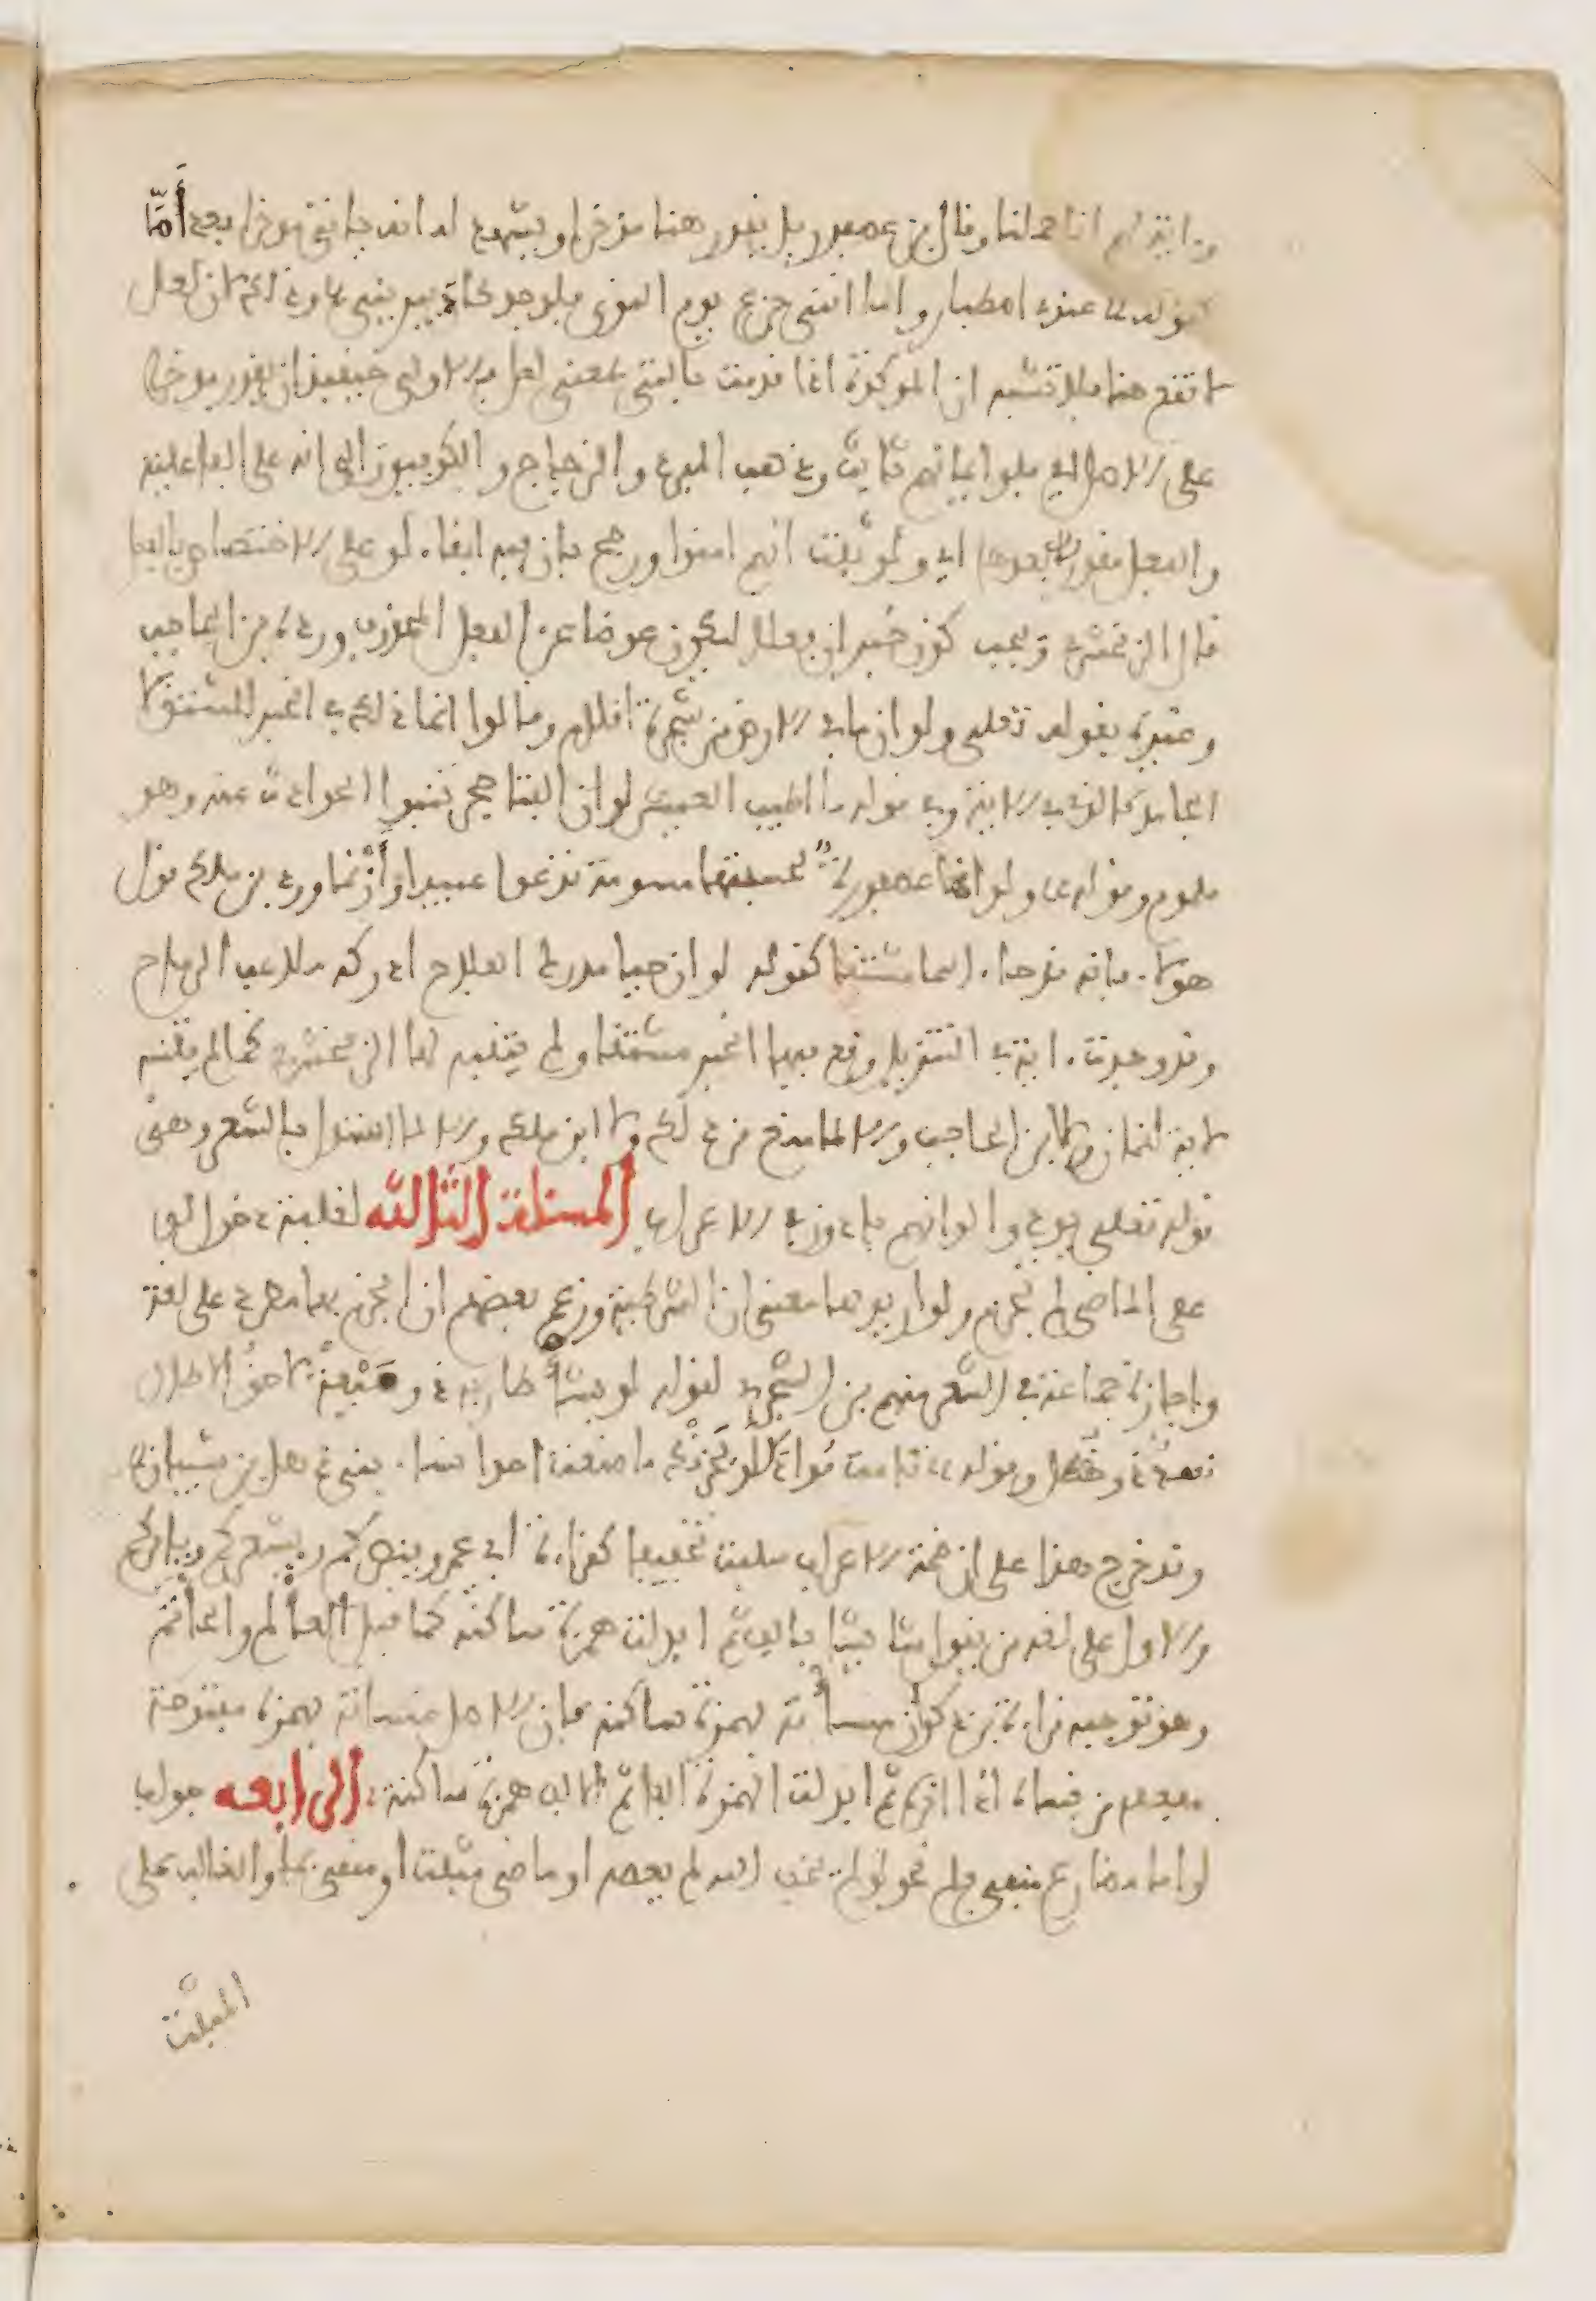 وءاية لهم انا حملنا وقال بن عصفور بل يقدر هنا مؤخرا ويشهد له انه ياتي مؤخرا بعد أمّا
كقوله عندي اصطبار واما انني جزع يوم النوى فلوجد كاد يبريني وذلك لان لعل
لا تقع هنا فلا تشتبه ان الموكدة اذا قدمت بالتي بمعنى لعل والاولى حينيذ ان يقدر موخرا
على الاصل اي ولو ايمانهم ثابت وذهب المبرد والزجاج والكوفيون الى انه على الفاعلية
والفعل مقدر بعدها اي ولو ثبت انهم امنوا ورجح بان فيه ابقاء لو على الاختصاص بالفعل
قال الزمخشري ويجب كون خبر ان فعلا ليكون عوضا عن الفعل المحذوف ورده بن الحاجب
وغيره بقوله تعلى ولو ان ما في الارض من شجرة اقلام وقالوا انما ذلك في الخبر المشتق لا
الجامد كالذي في الاية وفي قوله ما اطيب العيش لو ان الفتى حجر تنبوا الحوادث عنه وهو
ملموم وقوله ولو انها عصفورة لحسبتها مسومة تدعوا عبيدا وأزنما ورد بن ملك قول
هولاء بانه قد جاء اسما مشتقا كقوله لو ان حيا مدرك الفلاح ادركه ملاعب الرماح
وقد وجدت ءاية في التنزيل وقع فيها الخبر مشتقا ولم يتنبه لها الزمخشري كما لم يتنبه
لاية لقمان ولا بن الحاجب والا لما منع من ذلك ولا ابن ملك والا لما استدل بالشعر وهي
قوله تعلى يودوا لو انهم بادون في الاعراب المسئلة الثالثة لغلبة دخول لو
على الماضي لم تجزم ولو اريد بها معنى ان الشرطية وزعم بعضهم ان الجزم بها مطرد على لغة
واجازه جماعة في الشعر منهم بن الشجري كقوله لو يشأ طار به ذو ميعة لاحق الاطال
نهد ذو خصل وقوله تامت فوادك لو يحزنك ما صنعت احدا نساء بني ذهل بن شيبان
وقد خرج هذا على ان ضمة الاعراب سكنت تخفيفا كقراءة ابي عمرو ينصركم ويشعركم ويامركم
والاول على لغة من يقول شا يشا بالف ثم ابدلت همزة ساكنة كما قيل العألم والخأتم
وهو توجيه قراءة بن ذكوان منسأته بهمزة ساكنة فان الاصل منسأته بهمزة مفتوحة
مفعلة من نسأه اذا اخره ثم ابدلت الهمزة الفا ثم الالف همزة ساكنة الرابعه جواب
لو اما مضارع منفي بلم نحو لو لم يخف الله لم يعصه او ماضي مثبت او منفي بما والغالب على
المثبت